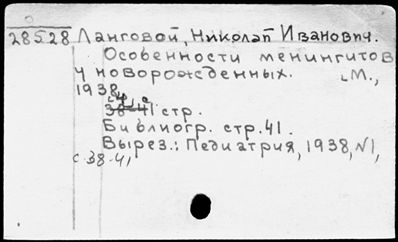 28528 Ланговой, Николай Иванович.
Особенности менингитов
у новорожденных. М.,
1938,
4 с.
38-41 стр.
Библиогр. стр. 41.
Вырез.: Педиатрия, 1938, №1,
с. 38-41